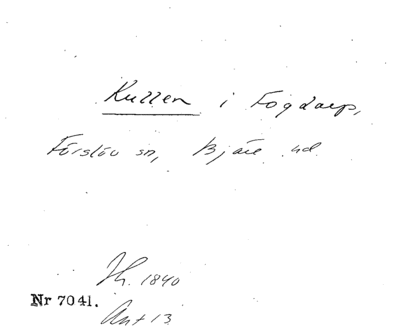 Kullen i Fogdarp,
Förslöv sn, Bjäre hd
Jh. 1840
Nr 7041.
Ant 13